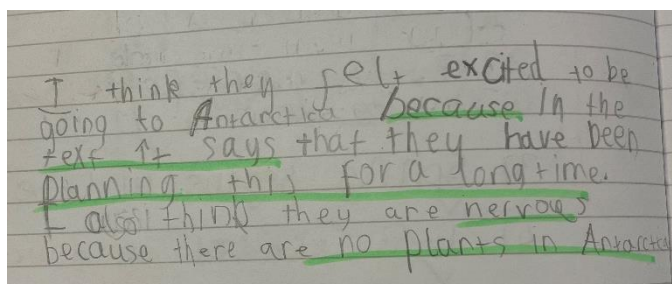 I think they felt excited to be
going to Antarctica because in the
text It says that they have been
planning this for a long time.
I also think they are nervous
because there are no plants in Antarctica